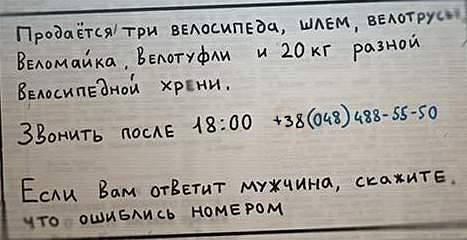 Продаётся три велосипеда, шлем, велотрусы
Веломайка, Велотуфли и 20 кг разной
Велосипедной хрени.
Звонить после 18:00 +38(048)488-55-50
Если Вам ответит мужчина, скажите,
что ошиблись номером